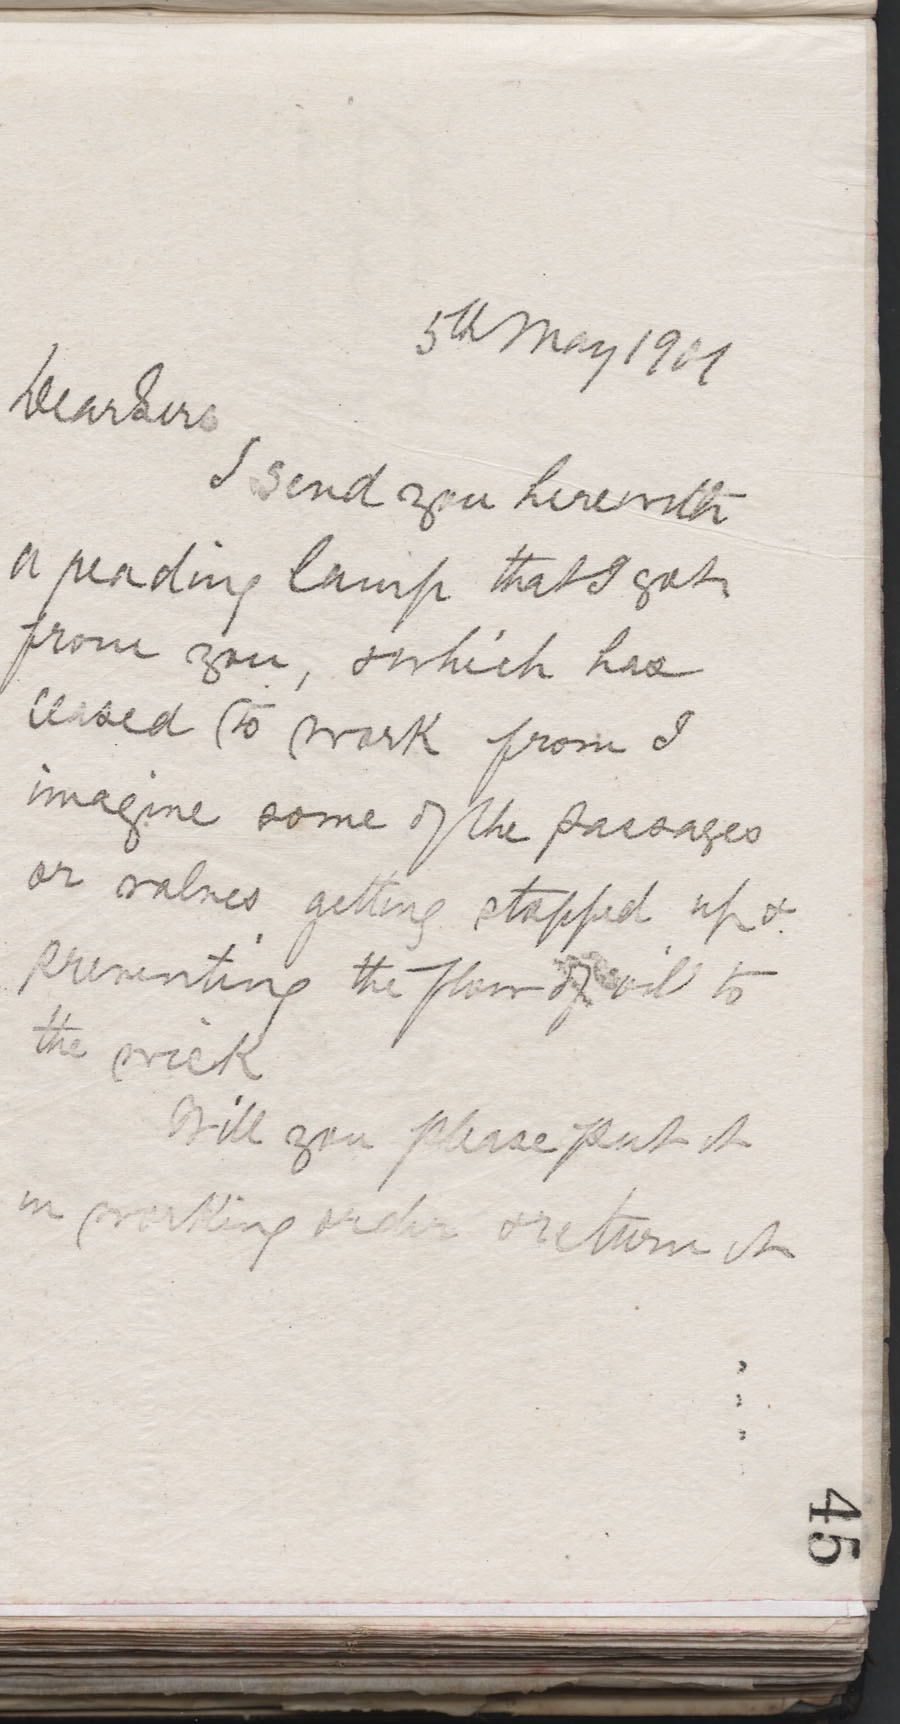 5th May 1901
Dear Sirs
I send you herewith
a reading lamp that I got
from you, & which has
ceased to work from I
imagine some of the passages
or valves getting stopped up &
preventing the flow of oil to
the wick
Will you please put it
in working order & return it
45